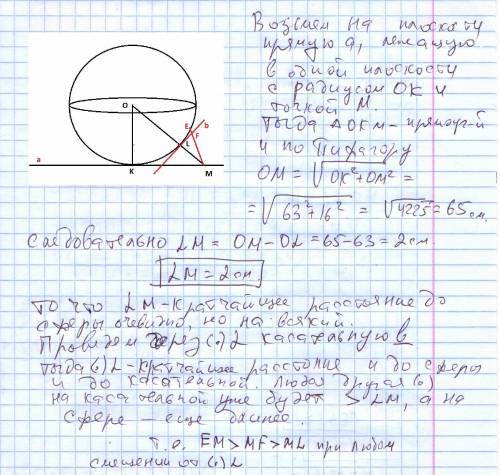 Возьмем на плоскости
прямую a, лежащую
в одной плоскости
с радиусом OK и
точкой M.
Тогда ΔOKM - прямоуг-й
и по Пифагору
OM = √OK²+OM² =
= √63²+16² = √4225 = 65 см.
Следовательно LM = OM-OL = 65-63 = 2 см.
LM = 2 см
То что LM - кратчайшее расстояние до
сферы очевидно, но на всякий.
Проведем через (·) L касательную b
тогда (·) L - кратчайшее расстояние и до сферы
и до касательной. Любая другая (·)
на касательной уже будет > LM, а на
сфере - еще далее.
Т.о. EM > MF > ML при любом
смещении от (·) L
O
E
b
F
L
a
K
M